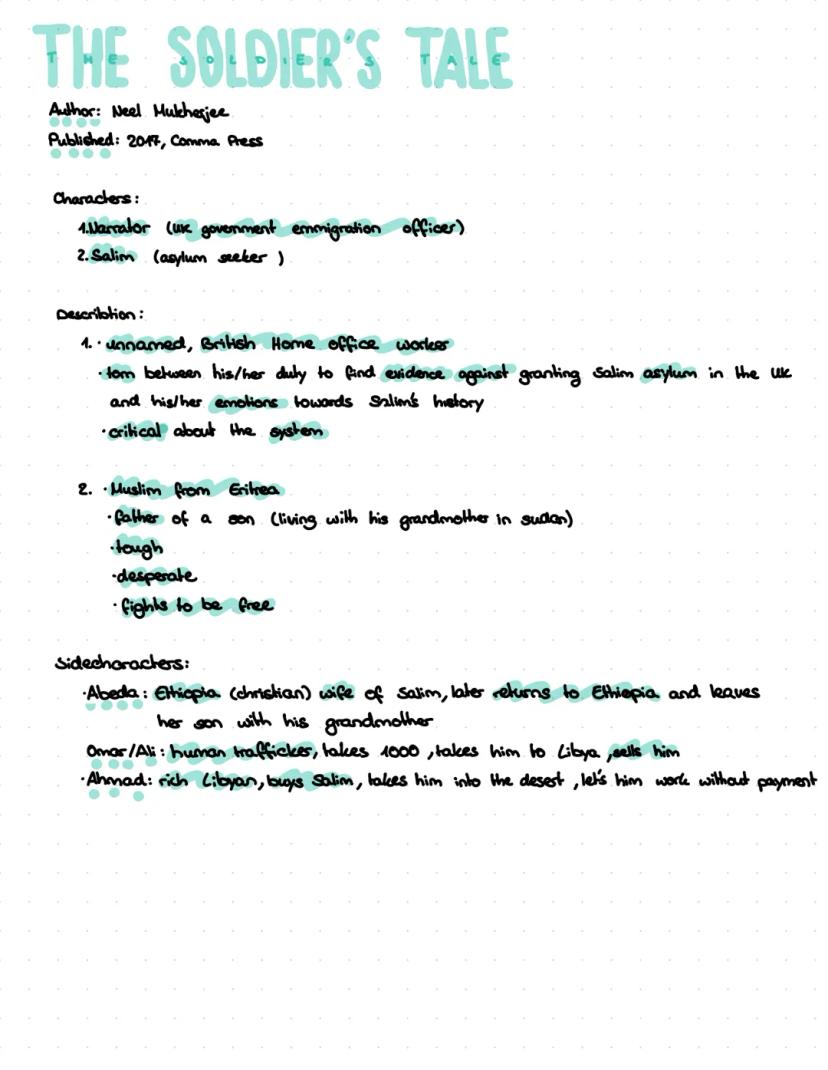 THE SOLDIER'S TALE
THE SOLDIERS TALE
Author: Neel Mukherjee
Published: 2017, Comma Press
Characters:
1.Narrator (UK government emmigration officer)
2. Salim (asylum seeker )
Describtion:
1. · unnamed, British Home office worker
· torn between his/her duty to find evidence against granting Salim asylum in the UK
and his/her emotions towards Salim's history
· critical about the system
2. · Muslim from Eritrea
· father of a son (living with his grandmother in sudan)
· tough
· desperate
· fights to be free
Sidecharacters:
· Abeda: Ethiopia (christian) wife of Salim, later returns to Ethiopia and leaves
her son with his grandmother
Omar/Ali: human trafficker, takes 1000, takes him to Libya, sells him
· Ahmad: rich Libyan, buys Salim, takes him into the desert, let's him work without payment